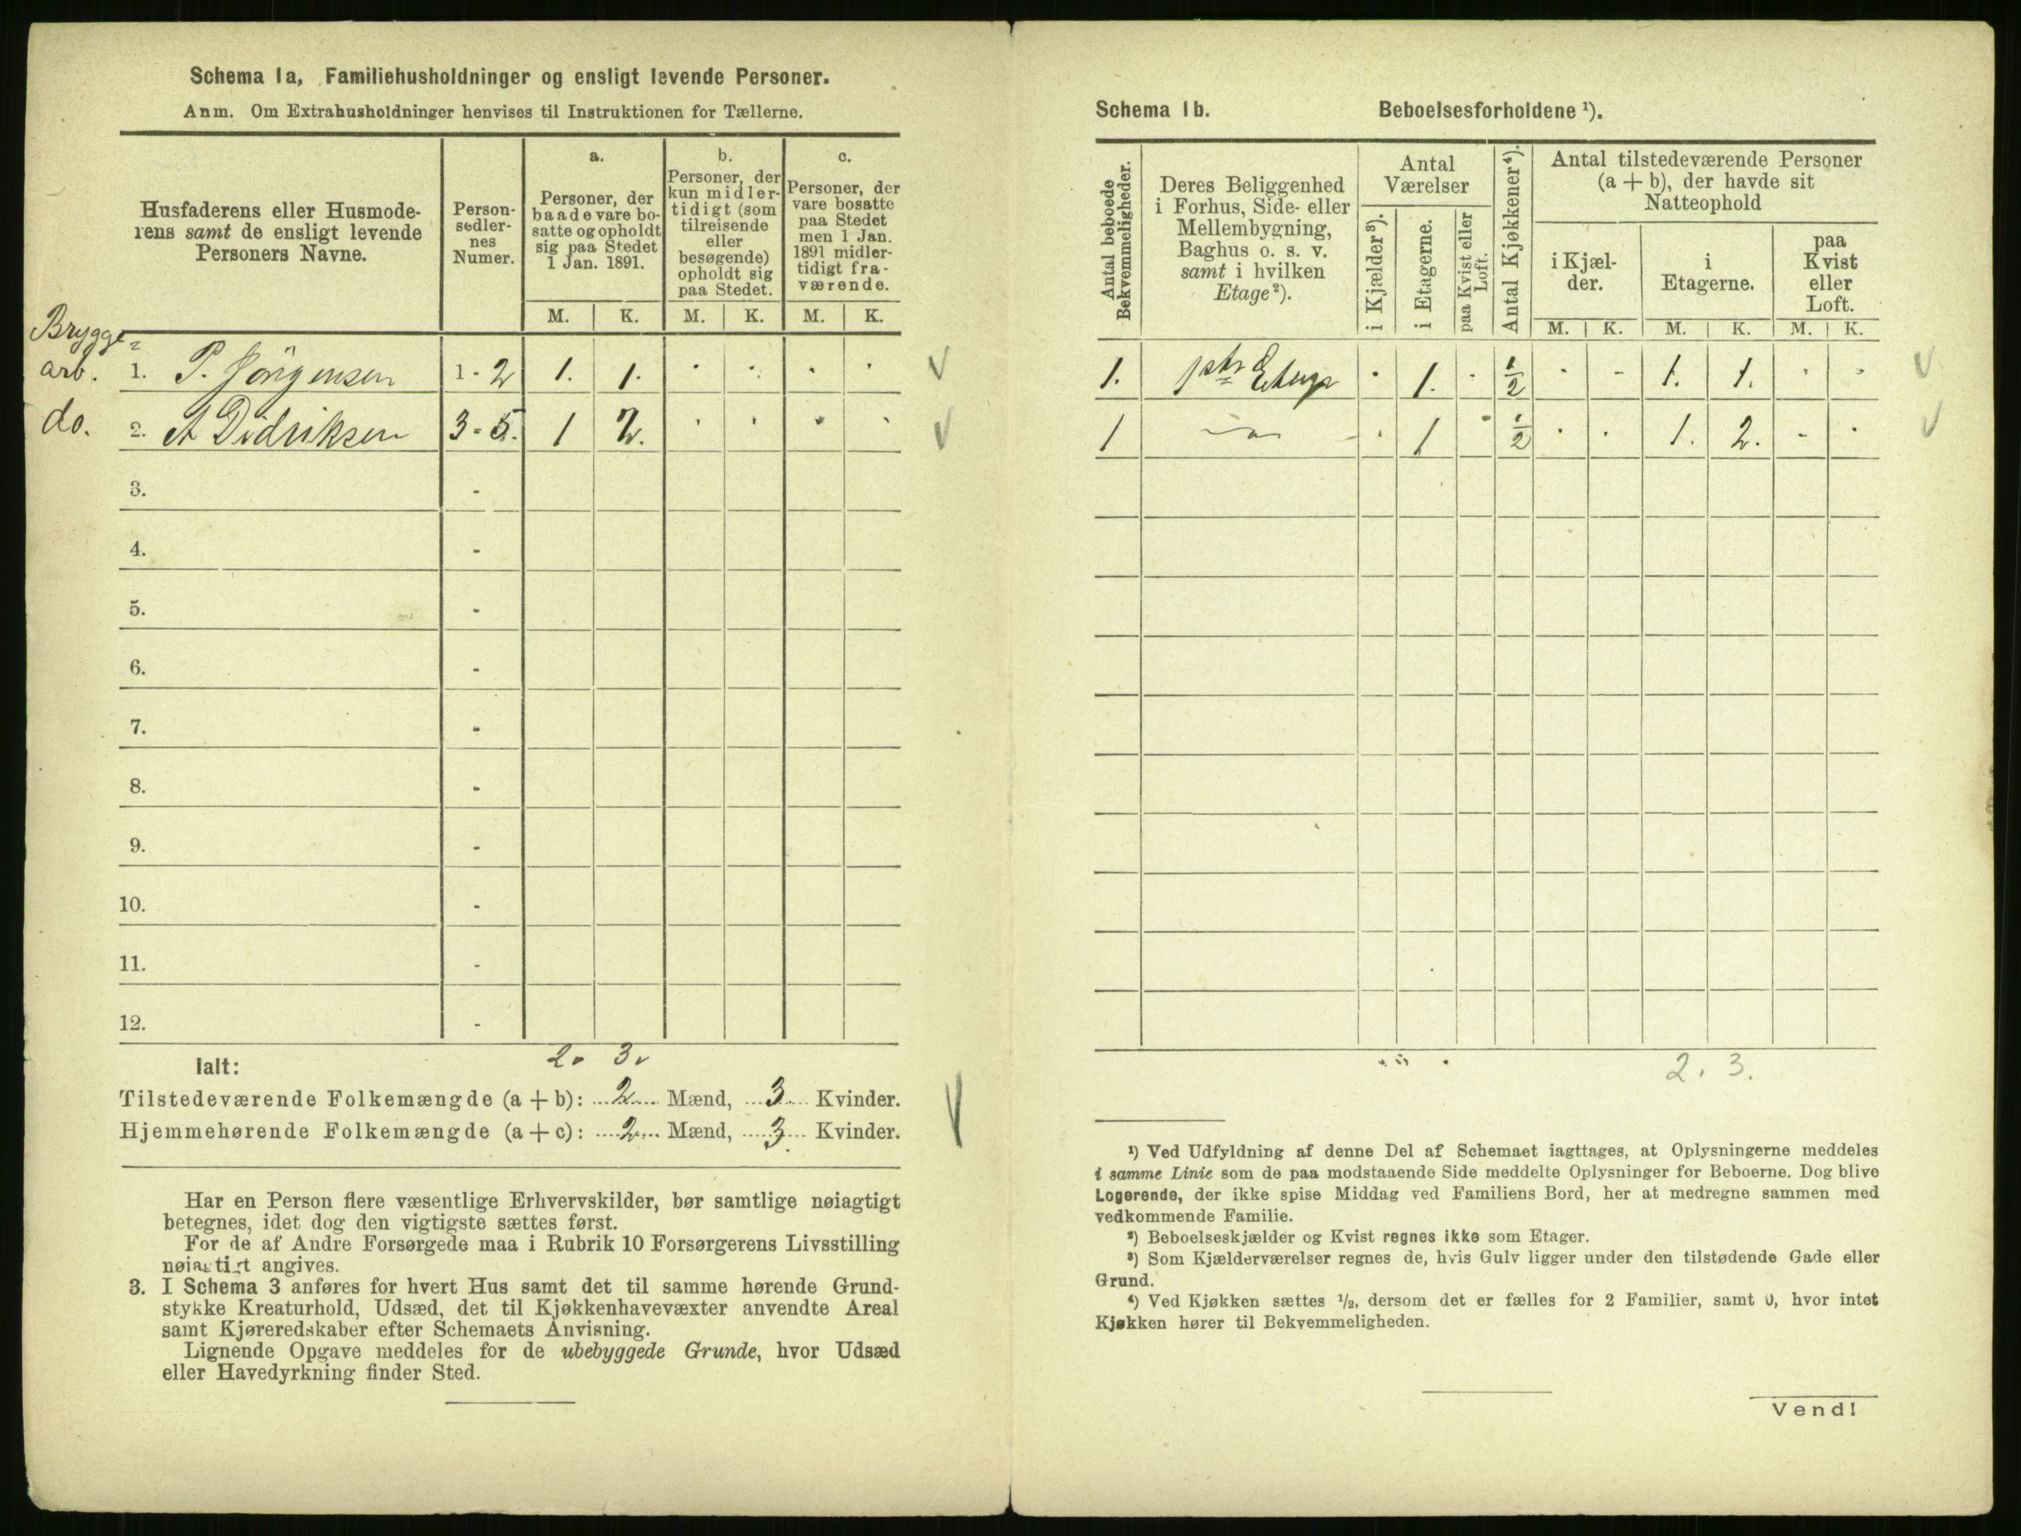 Schema 1a, Familiehusholdninger og ensligt levende Personer.
Anm. Om Extrahusholdninger henvises til Instruktionen for Tællerne.
Husfaderens eller Husmode-
rens samt de ensligt levende
Personers Navne.
Person-
sedler-
nes
Numer.
a.
Personer, der
baade vare bo-
satte og opholdt
sig paa Stedet
1 Jan. 1891.
b.
Personer, der
kun midler-
tidigt (som
tilreisende
eller
besøgende)
opholdt sig
paa Stedet.
c.
Personer, der
vare bosatte
paa Stedet
men 1 Jan.
1891 midler-
tidigt fra-
værende.
M. K. M. K. M. K.
Brygge-
arb. 1. P. Jörgensen 1 - 2 1. 1.
do. 2. A Didriksen 3 - 5. 1 2.
3. -
4. -
5. -
6. -
7. -
8. -
9. -
10. -
11. -
12. -
Ialt: 2. 3.
Tilstedeværende Folkemængde (a + b): 2 Mænd, 3 Kvinder.
Hjemmehørende Folkemængde (a + c): 2 Mænd, 3 Kvinder.
Har en Person flere væsentlige Erhvervskilder, bør samtlige nøiagtigt
betegnes, idet dog den vigtigste sættes først.
For de af Andre Forsørgede maa i Rubrik 10 Forsørgerens Livsstilling
nøiagtigt angives.
3. I Schema 3 anføres for hvert Hus samt det til samme hørende Grund-
stykke Kreaturhold, Udsæd, det til Kjøkkenhavevæxter anvendte Areal
samt Kjøreredskaber efter Schemaets Anvisning.
Lignende Opgave meddeles for de ubebyggede Grunde, hvor Udsæd
eller Havedyrkning finder Sted.
Schema 1b. Beboelsesforholdene ¹).
Antal beboede
Bekvemmeligheder.
Deres Beliggenhed
i Forhus, Side- eller
Mellembygning,
Baghus o. s. v.
samt i hvilken
Etage²).
Antal
Værelser
i Kjælder³).
i Etagerne.
paa Kvist eller
Loft.
Antal Kjøkkener⁴).
Antal tilstedeværende Personer
(a + b), der havde sit
Natteophold
i Kjæl-
der.
i
Etagerne.
paa
Kvist
eller
Loft.
M. K. M. K. M. K.
1. 1ste Etage 1. 1/2 1. 1.
1 1 1/2 1. 2.
2. 3.
¹) Ved Udfyldning af denne Del af Schemaet iagttages, at Oplysningerne meddeles
i samme Linie som de paa modstaaende Side meddelte Oplysninger for Beboerne. Dog blive
Logerende, der ikke spise Middag ved Familiens Bord, her at medregne sammen med
vedkommende Familie.
²) Beboelseskjælder og Kvist regnes ikke som Etager.
³) Som Kjælderværelser regnes de, hvis Gulv ligger under den tilstødende Gade eller
Grund.
⁴) Ved Kjøkken sættes ¹/₂, dersom det er fælles for 2 Familier, samt 0, hvor intet
Kjøkken hører til Bekvemmeligheden.
Vend!